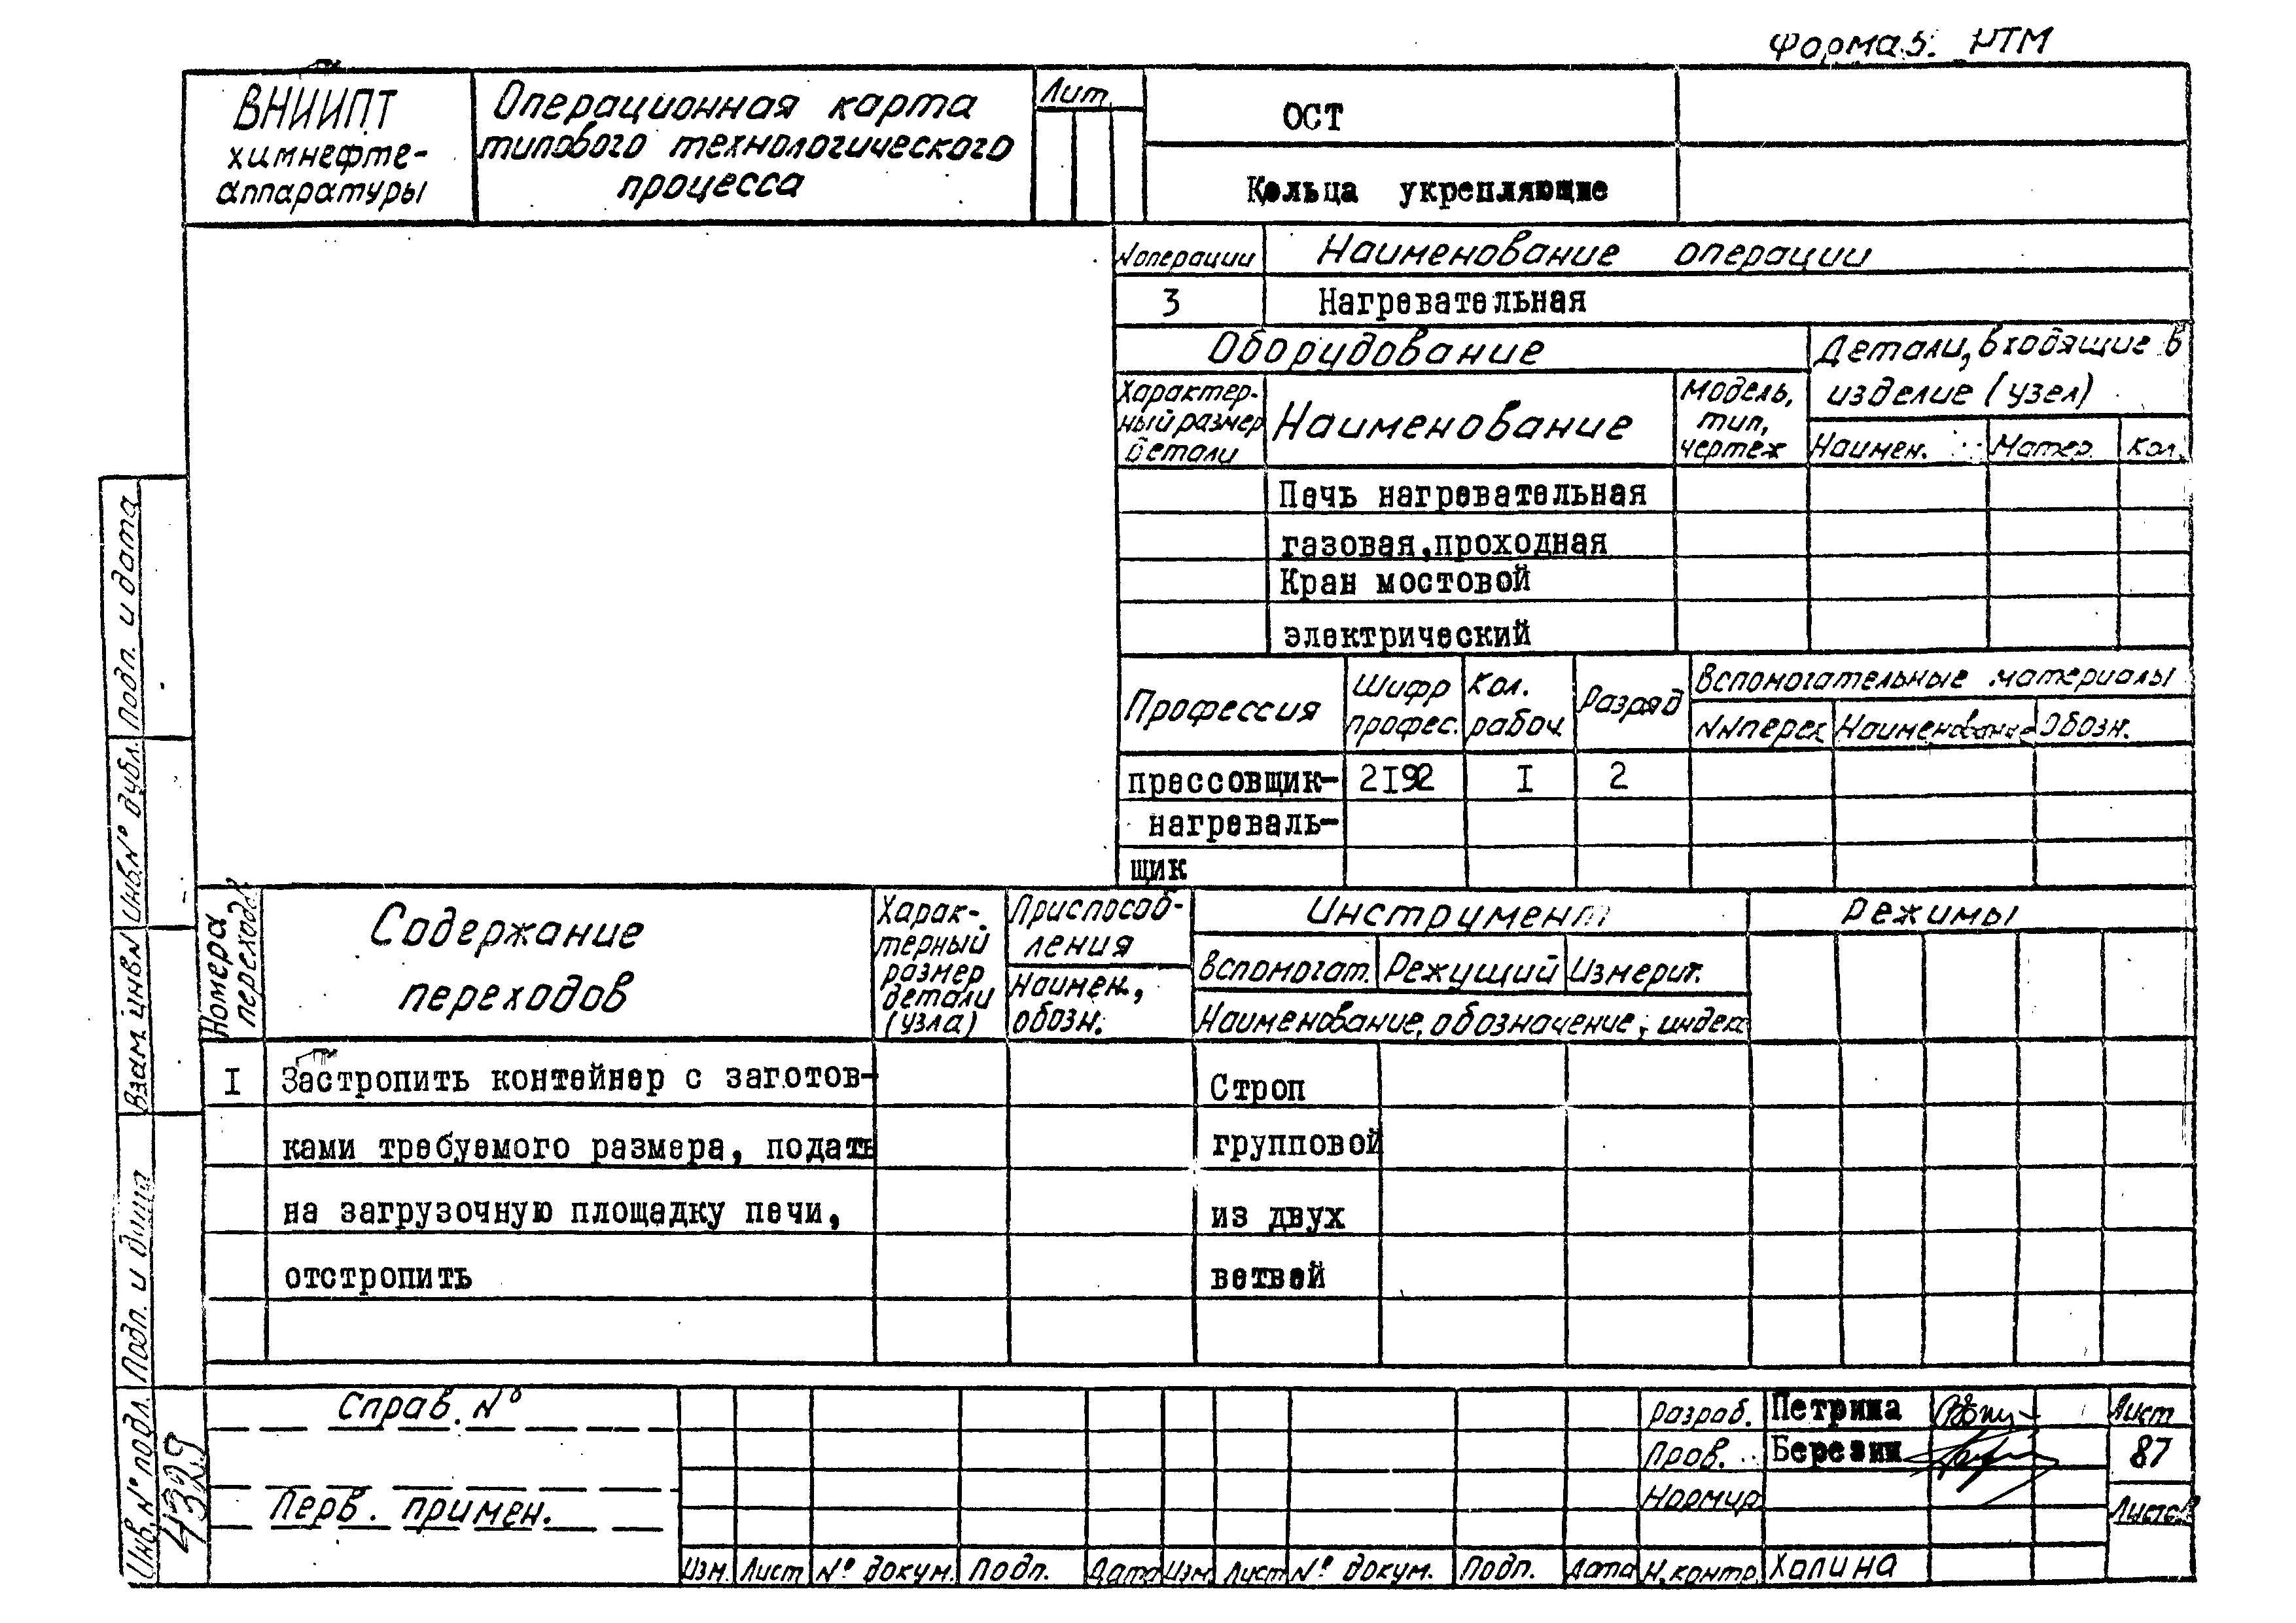 Форма 5. РТМ
ВНИИПТ
химнефте-
аппаратуры
Операционная карта
типового технологического
процесса
Лит
ОСТ
Кольца укрепляющие
№ операции
Наименование операции
3
Нагревательная
Оборудование
Детали, входящие в
изделие (узел)
Характер-
ный размер
детали
Наименование
Модель,
тип,
чертеж
Наимен.
Матер.
Кол.
Печь нагревательная
газовая, проходная
Кран мостовой
электрический
Профессия
Шифр
профес.
Кол.
рабоч.
Разряд
Вспомогательные материалы
№№ перех
Наименование
Обозн.
прессовщик-
2I92
I
2
нагреваль-
щик
Номера
переходов
Содержание
переходов
Харак-
терный
размер
детали
(узла)
Приспособ-
ления
Наимен.,
обозн.
Инструмент
Вспомогат.
Режущий
Измерит.
Наименование, обозначение, индекс
Режимы
I
Застропить контейнер с заготов-
ками требуемого размера, подать
на загрузочную площадку печи,
отстропить
Строп
групповой
из двух
ветвей
Подп. и дата
Инв. № дубл.
Взам. инв. №
Подп. и дата
Инв. № подл.
4329
Справ. №
Перв. примен.
Изм.
Лист
№ докум.
Подп.
Дата
Изм.
Лист
№ докум.
Подп.
Дата
Разраб.
Петрина
Пров.
Березин
Нормир.
Н. контр.
Халина
Лист
87
Листов